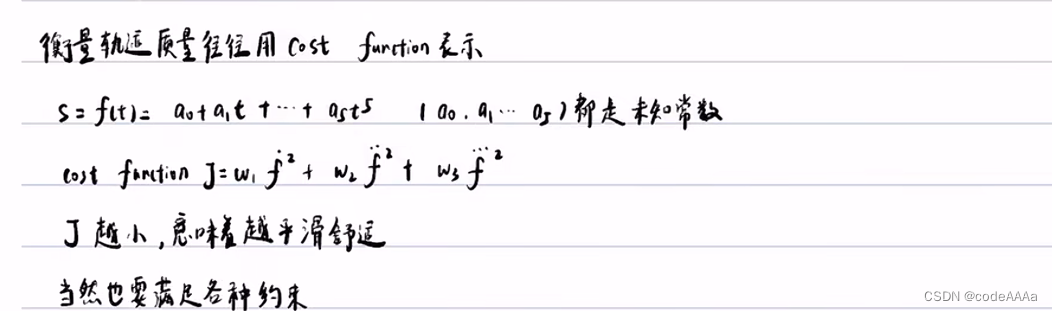 衡量轨迹质量往往用 cost function 表示
S = f(t) = a₀+a₁t + ⋯ + a₅t⁵ (a₀, a₁ ⋯ a₅)都是未知常数
cost function J = w₁ ḟ² + w₂ f̈² + w₃ f⃛²
J 越小,意味着越平滑舒适
当然也要满足各种约束
CSDN @codeAAAa